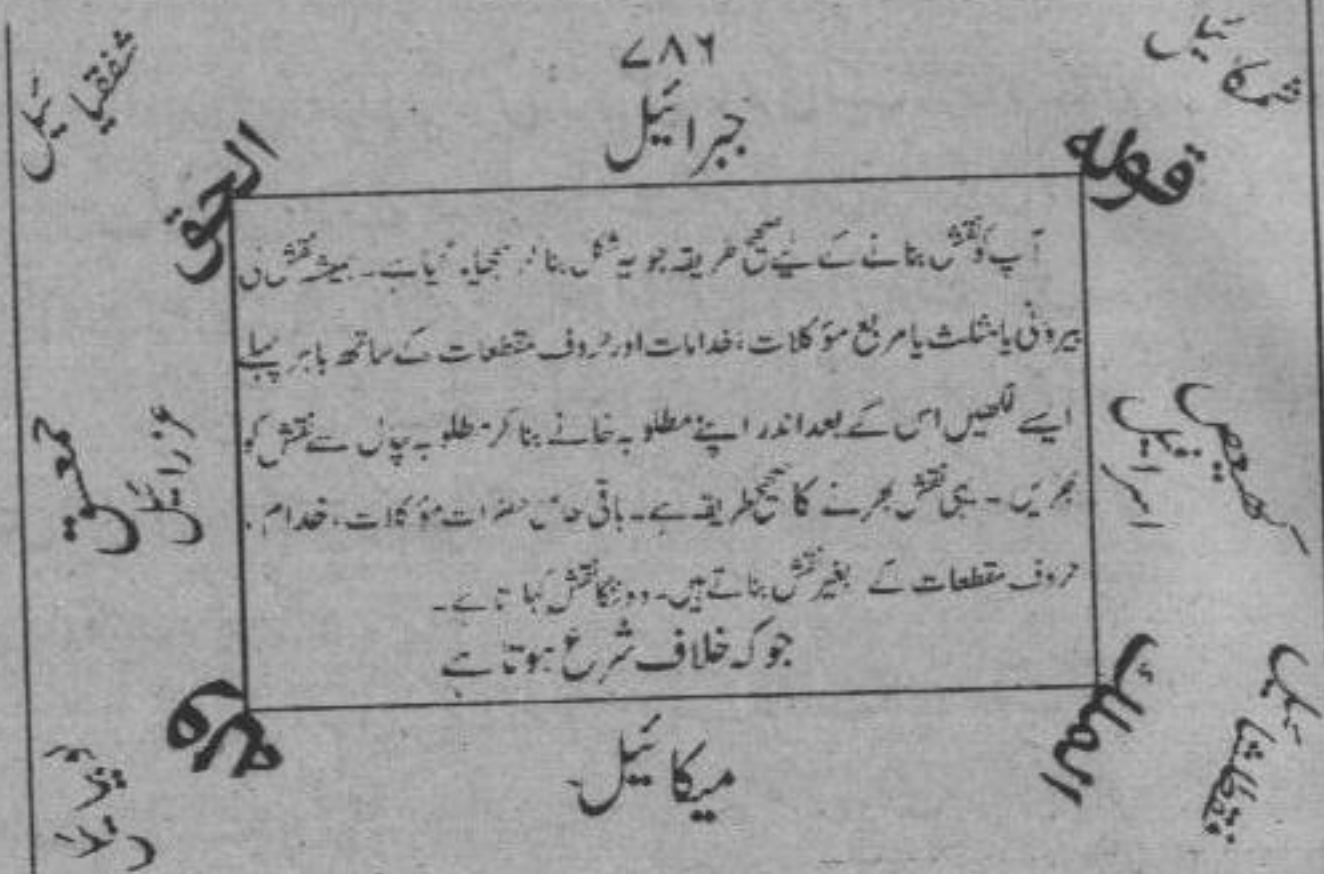 ۷۸۶
جبرائیل
شمکائیل
شفقیائیل
قوله
الحق
آپ کو نقش بنانے کے لیے صحیح طریقہ جو یہ شکل بنا کر سمجھایا گیا ہے۔ ہمیشہ نقش کی
بیرونی یا مثلث یا مربع مؤکلات، خدامات اور حروف مقطعات کے ساتھ باہر پہلے
ایسے لکھیں اس کے بعد اندر اپنے مطلوبہ خانے بنا کر مطلوبہ چال سے نقش کو
بھریں۔ یہی نقش بھرنے کا صحیح طریقہ ہے۔ باقی حضرات مؤکلات، خدام،
حروف مقطعات کے بغیر نقش بناتے ہیں۔ وہ ننگا نقش کہلاتا ہے۔
جو کہ خلاف شرع ہوتا ہے
كهيعص
اسرافیل
عزرائیل
حمعسق
الملك
وله
میکائیل